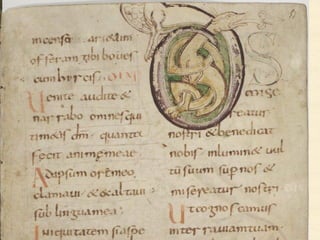 offeram tibi boves
cum hircis
Uenite audite &
narrabo omnes qui
timetis dm quanta
fecit animae meae
Ad ipsum ore meo
clamavi & exaltavi
sub lingua mea
Iniquitatem si aspe
D S
mise
reatur
nostri & benedicat
nobis inlumin& vul
tum suum sup nos &
misereatur nostri
Ut cognoscamus
in terra viam tuam